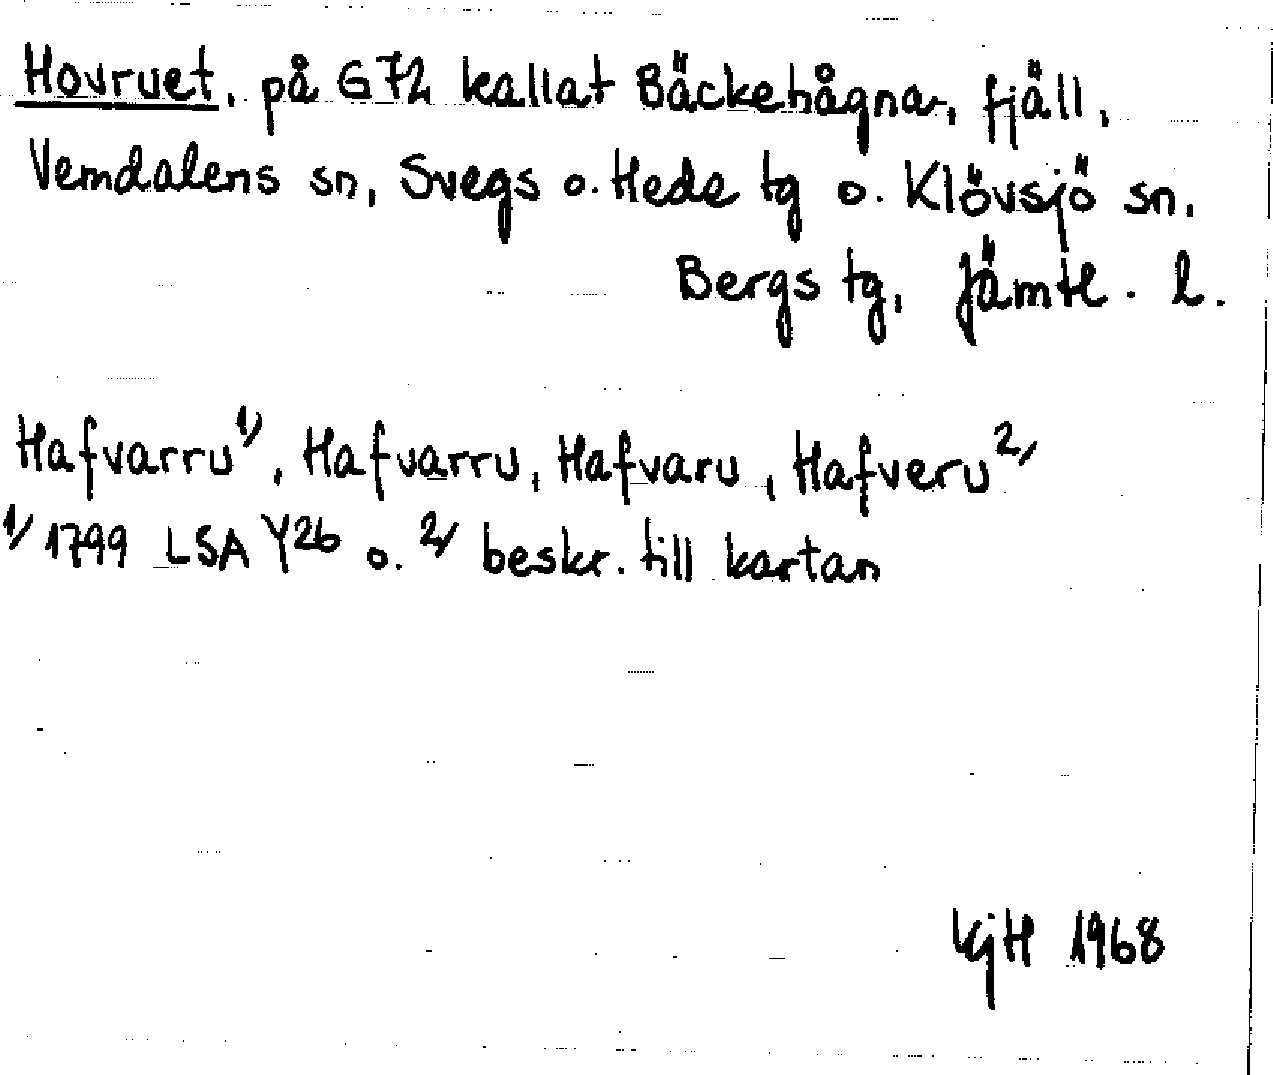 Hovruet, på G72 kallat Bäckehågna, fjäll,
Vemdalens sn, Svegs o. Hede tg o. Klövsjö sn.
Bergs tg, Jämtl. l.
Hafvarru 1/, Hafvarru, Hafvaru, Hafveru 2/
1/ 1799 LSA Y26 o. 2/ beskr. till kartan
KjH 1968